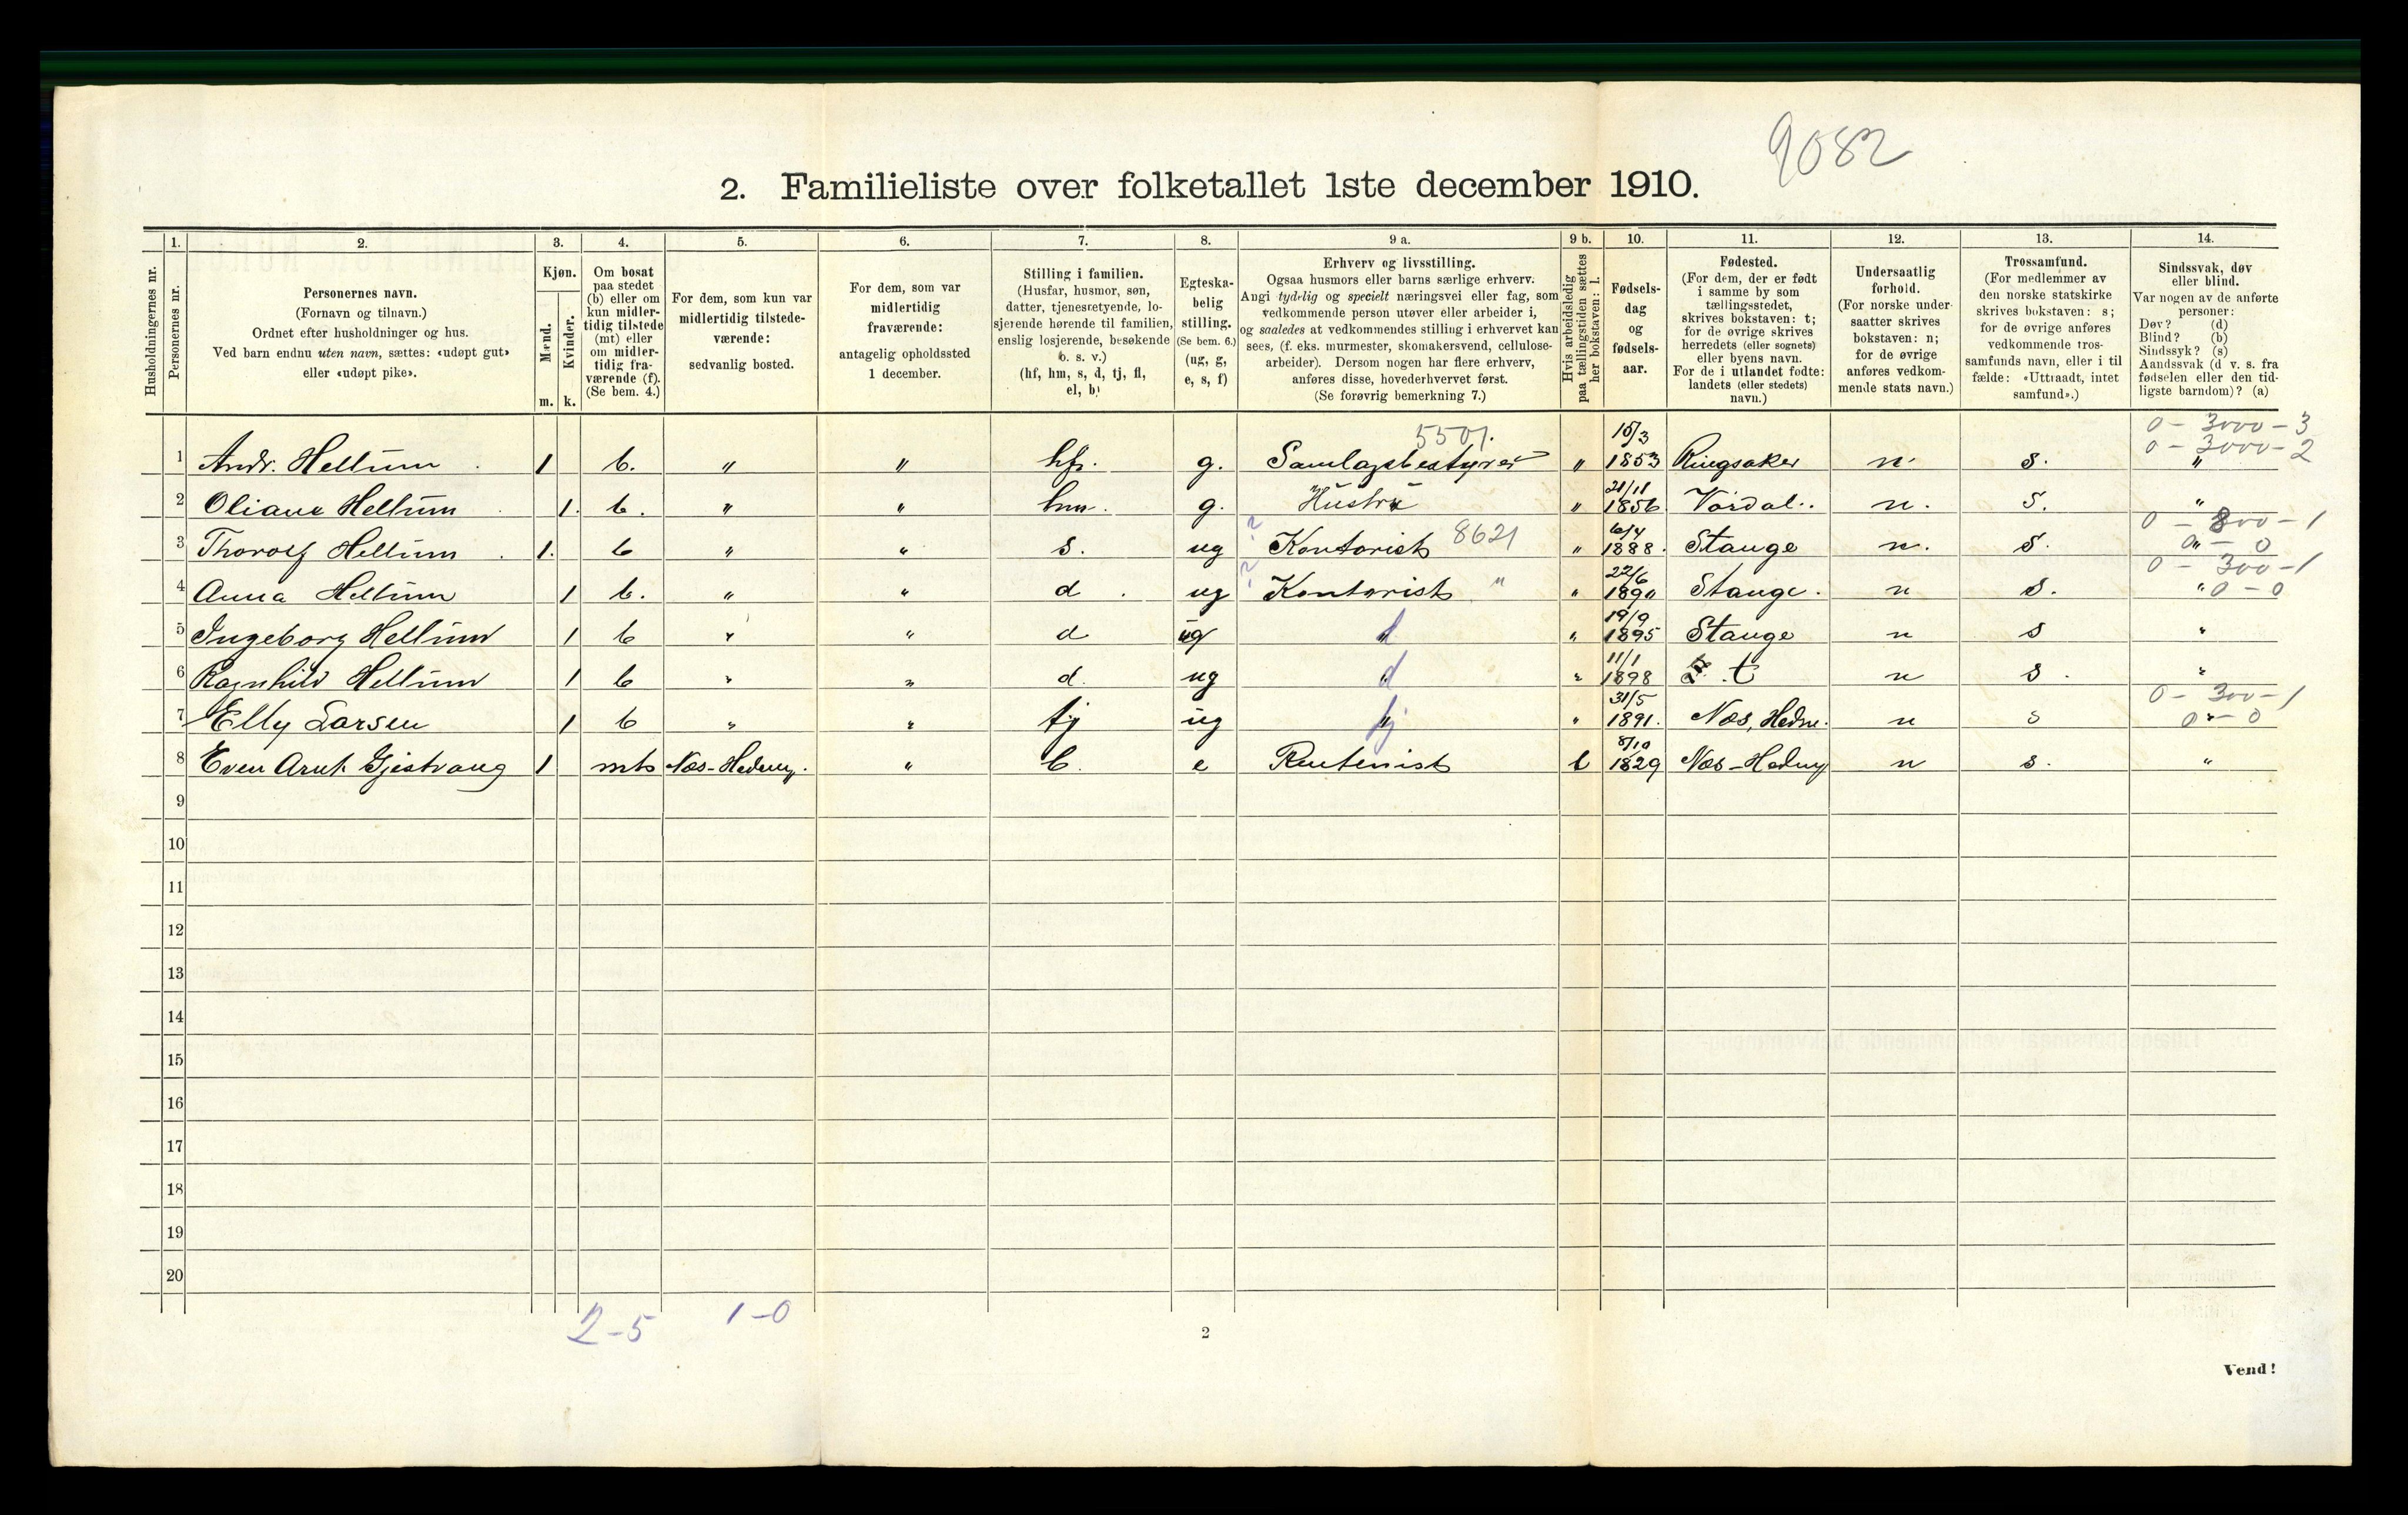 9082
2. Familieliste over folketallet 1ste december 1910.
1. 2. 3. 4. 5. 6. 7. 8. 9 a. 9 b. 10. 11. 12. 13. 14.
Husholdningernes nr.
Personernes nr.
Personernes navn.
(Fornavn og tilnavn.)
Ordnet efter husholdninger og hus.
Ved barn endnu uten navn, sættes: «udøpt gut»
eller «udøpt pike».
Kjøn.
Mænd.
Kvinder.
m. k.
Om bosat
paa stedet
(b) eller om
kun midler-
tidig tilstede
(mt) eller
om midler-
tidig fra-
værende (f).
(Se bem. 4.)
For dem, som kun var
midlertidig tilstede-
værende:
sedvanlig bosted.
For dem, som var
midlertidig
fraværende:
antagelig opholdssted
1 december.
Stilling i familien.
(Husfar, husmor, søn,
datter, tjenestetyende, lo-
sjerende hørende til familien,
enslig losjerende, besøkende
o. s. v.)
(hf, hm, s, d, tj, fl,
el, b)
Egteska-
belig
stilling.
(Se bem. 6.)
(ug, g,
e, s, f)
Erhverv og livsstilling.
Ogsaa husmors eller barns særlige erhverv.
Angi tydelig og specielt næringsvei eller fag, som
vedkommende person utøver eller arbeider i,
og saaledes at vedkommendes stilling i erhvervet kan
sees, (f. eks. murmester, skomakersvend, cellulose-
arbeider). Dersom nogen har flere erhverv,
anføres disse, hovederhvervet først.
(Se forøvrig bemerkning 7.)
Hvis arbeidsledig
paa tællingstiden sættes
her bokstaven: l.
Fødsels-
dag
og
fødsels-
aar.
Fødested.
(For dem, der er født
i samme by som
tællingsstedet,
skrives bokstaven: t;
for de øvrige skrives
herredets (eller sognets)
eller byens navn.
For de i utlandet fødte:
landets (eller stedets)
navn.)
Undersaatlig
forhold.
(For norske under-
saatter skrives
bokstaven: n;
for de øvrige
anføres vedkom-
mende stats navn.)
Trossamfund.
(For medlemmer av
den norske statskirke
skrives bokstaven: s;
for de øvrige anføres
vedkommende tros-
samfunds navn, eller i til
fælde: «Uttraadt, intet
samfund».)
Sindssvak, døv
eller blind.
Var nogen av de anførte
personer:
Døv? (d)
Blind? (b)
Sindssyk? (s)
Aandssvak (d v. s. fra
fødselen eller den tid-
ligste barndom)? (a)
5501. 15/3 0 - 3000 - 3
0 - 3000 - 2
1 Andr. Hellum 1 b. " " hf. g. Samlagsbestyrer " 1853 Ringsaker n. s. "
21/11
2 Oliane Hellum 1. b. " " hm. g. Hustru " 1856 Værdal. n. s. "
6/4 0 - 800 - 1
3 Thorolf Hellum 1. b " " s. ug ? Kontorist 8621 " 1888. Stange n. s. " 0 - 0
22/6 0 - 300 - 1
4 Anna Hellum 1 b. " " d. ug ? Kontorist " " 1890 Stange. n s. " 0 - 0
19/9
5 Ingeborg Hellum 1 b " " d ug d " 1895 Stange n s "
11/1
6 Ragnhild Hellum 1 b " " d. ug d " 1898 t n s. "
31/5 0 - 300 - 1
7 Elly Larsen 1 b " " tj ug tj " 1891. Næs, Hedm. n s 0 " - 0
8/10
8 Even Arnt Gjestvang 1 mt Næs-Hedm. " b. e Rentenist l 1829 Næs-Hedm n s. "
9
10
11
12
13
14
15
16
17
18
19
20
2-5 1-0
2
Vend!